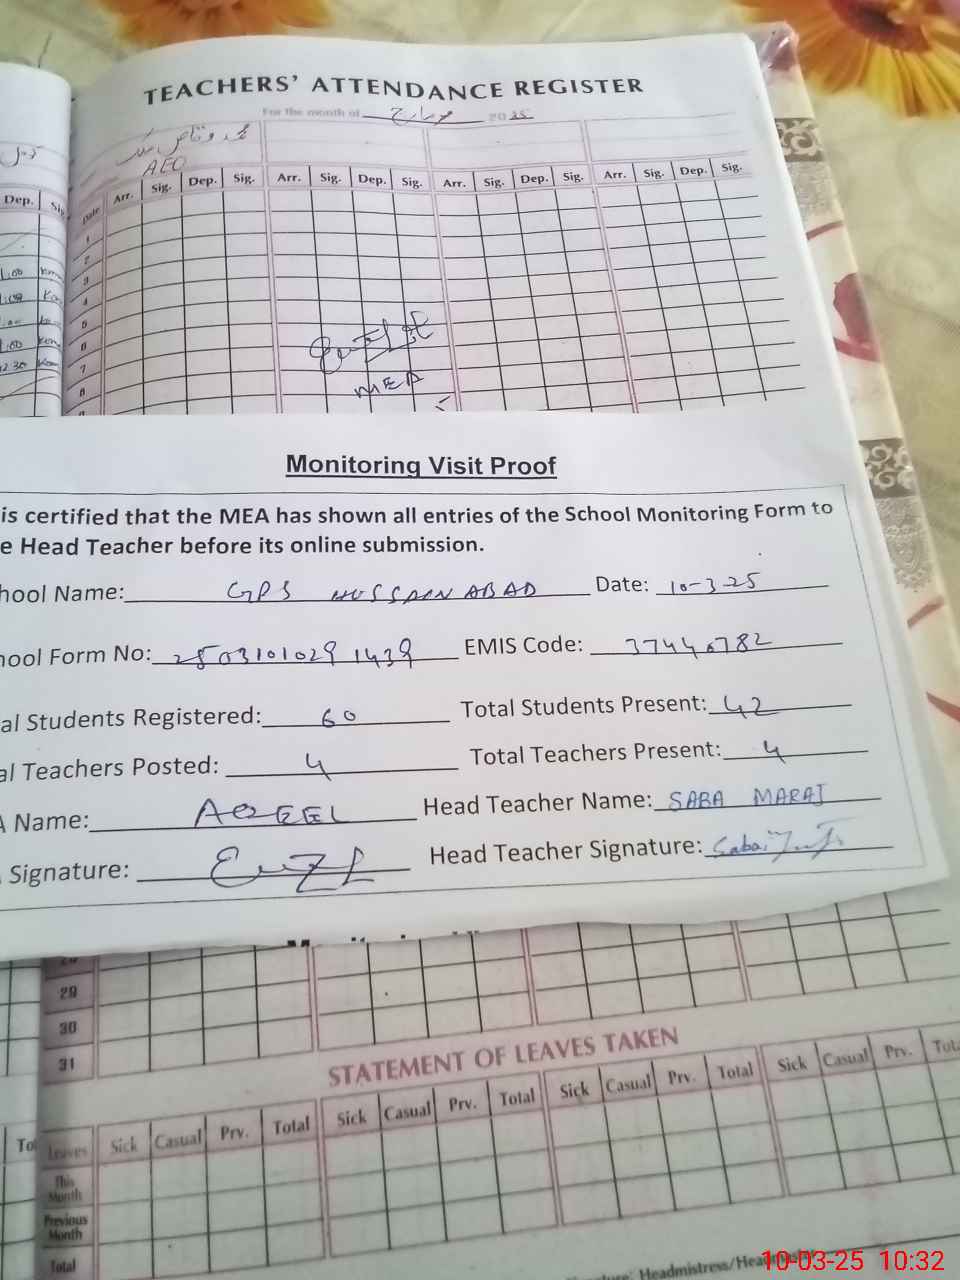 TEACHERS' ATTENDANCE REGISTER
For the month of مارچ 20 25
محمد وقاص
AEO
Dep. Sig.
Date Arr. Sig. Dep. Sig. Arr. Sig. Dep. Sig. Arr. Sig. Dep. Sig. Arr. Sig. Dep. Sig.
1
2
3
4
5
6
7
8
MEA
Monitoring Visit Proof
is certified that the MEA has shown all entries of the School Monitoring Form to
e Head Teacher before its online submission.
hool Name: GPS HUSSAIN ABAD Date: 10-3-25
hool Form No: 25031010291439 EMIS Code: 37440782
al Students Registered: 60 Total Students Present: 42
al Teachers Posted: 4 Total Teachers Present: 4
A Name: AQEEL Head Teacher Name: SABA MARAJ
Signature: Head Teacher Signature: Saba
29
30
31
STATEMENT OF LEAVES TAKEN
Leaves Sick Casual Prv. Total Sick Casual Prv. Total Sick Casual Prv. Total Sick Casual Prv. Tot
This Month
Previous Month
Total
Headmistress/Headmaster
10-03-25 10:32